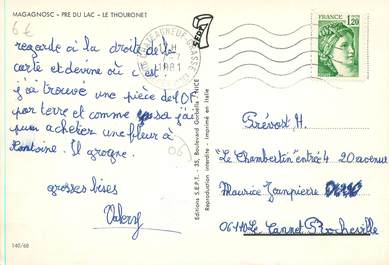 MAGAGNOSC - PRE DU LAC - LE THOURONET
6€
regarde à la droite de la
carte et devine où c'est
j'ai trouvé une pièce de 10F
par terre et comme ça j'ai
pu acheter une fleur à
Il grogne.
grosses bises
140/68
Editions S.E.P.T. - 35, Boulevard Gorbella - NICE
Reproduction interdite - Imprimé en Italie
SEPT
1981
FRANCE
1,20
Prévost H.
"Le Chambertin" entrée 4 20 avenue
Maurice Jeanpierre
06110 Le Cannet Rocheville
06